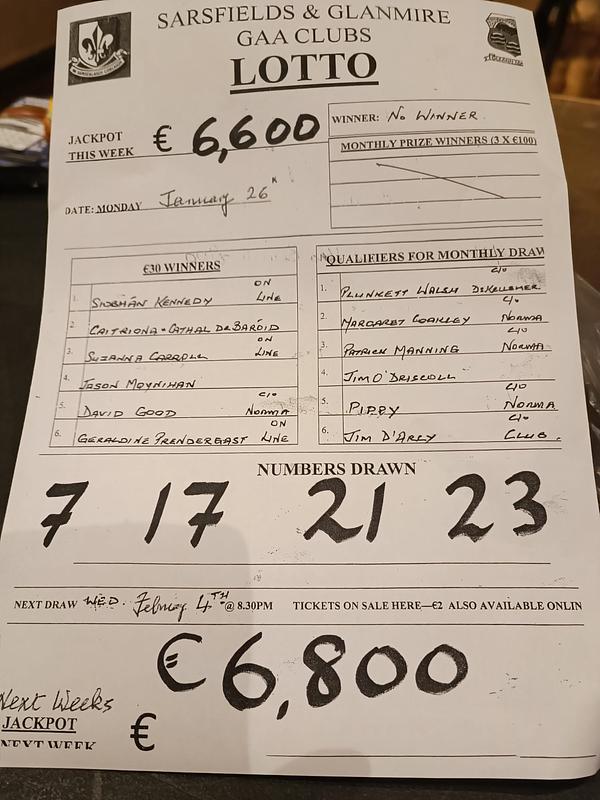 SARSFIELDS & GLANMIRE
GAA CLUBS
LOTTO
JACKPOT
THIS WEEK € 6,600
WINNER: No WINNER
MONTHLY PRIZE WINNERS (3 X €100)
DATE: MONDAY January 26th
€30 WINNERS
1. SIOBHÁN KENNEDY ON LINE
2. CAITRIONA + CATHAL DE BARÓID
3. SUZANNA CARROLL ON LINE
4. JASON MOYNIHAN
5. DAVID GOOD C/O NORMA
6. GERALDINE PRENDERGAST ON LINE
QUALIFIERS FOR MONTHLY DRAW
1. PLUNKETT WALSH C/O
2. MARGARET COAKLEY C/O NORMA
3. PATRICK MANNING C/O NORMA
4. JIM O'DRISCOLL
5. PIPPY C/O NORMA
6. JIM D'ARCY C/O CLUB.
NUMBERS DRAWN
7 17 21 23
NEXT DRAW WED. February 4TH @ 8.30PM TICKETS ON SALE HERE—€2 ALSO AVAILABLE ONLIN
€6,800
Next Weeks
JACKPOT €
NEXT WEEK